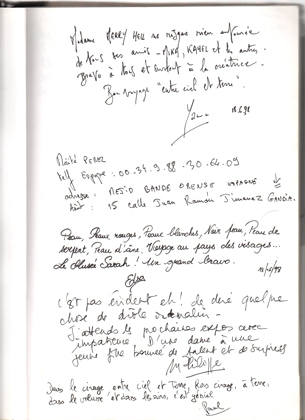 Madame MERRY HELL ne signe rien
de tous ses amis - MIKA, KAHEL et les autres.
Bravo à tous et surtout à la créatrice.
Bon voyage "entre ciel et terre".
Maïté PEREZ
telf Espagne : 00.34.9.88.30.64.09
15 calle Juan Ramón Jimenez GANDIA
Peau, Peaux rouges, Peaux blanches, Noir peau, Peau de
serpent, Peau d'âne, Voyage au pays des visages...
Le Musée Sarah! Un grand bravo.
c'est pas évident eh! de dire quelque
chose de drôle
J'attends les prochaines expos avec
impatience. D'une dame à une
jeune fille bourrée de talent et de
Dans le cirage entre ciel et Terre, hors cirage, à terre,
dans le velours et dans les airs, c'est génial